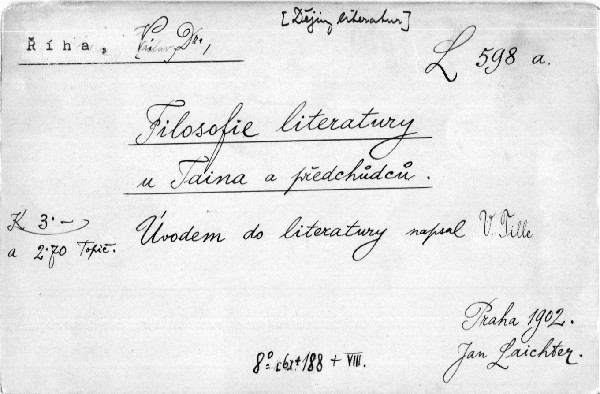 [Dějiny literatur]
Říha, Václav Dr.,
L 598 a.
Filosofie literatury
u Taina a předchůdců.
K 3·—
a 2·70 Topič.
Úvodem do literatury napsal V. Tille
Praha 1902.
Jan Laichter.
8° str. 188 + VIII.